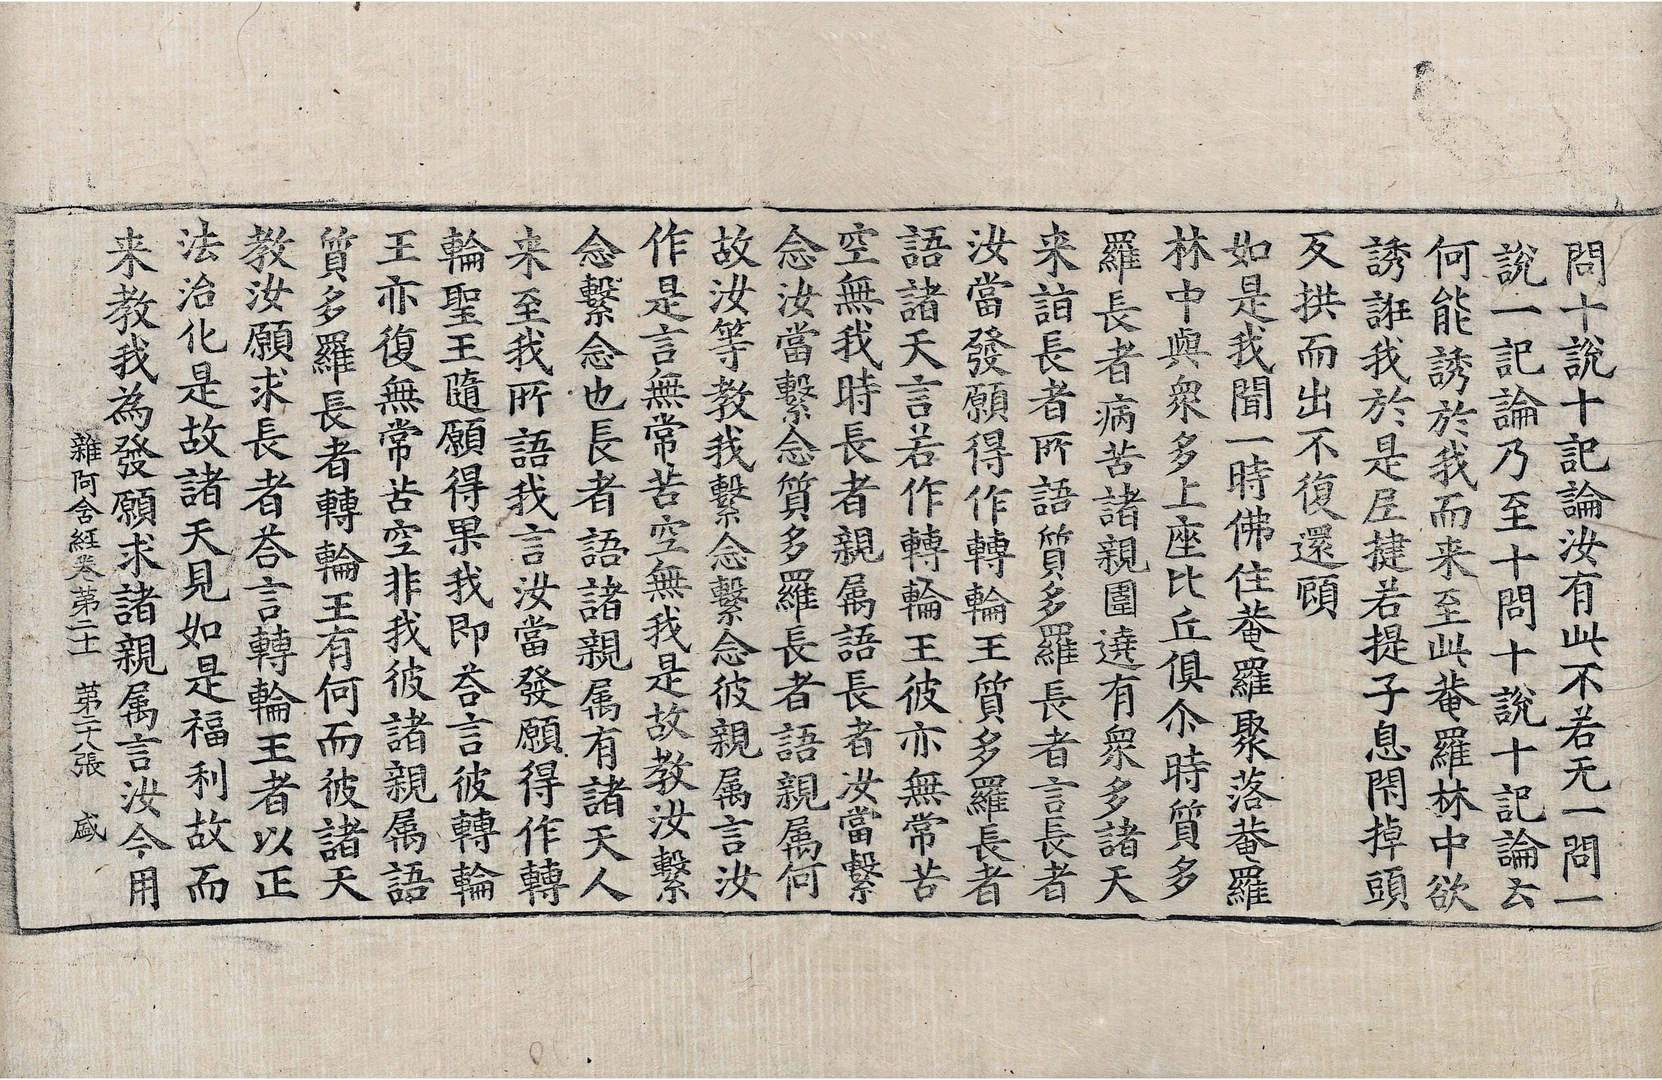 問十說十記論汝有此不若无一問一
說一記論乃至十問十說十記論云
何能誘於我而来至此菴羅林中欲
誘誑我於是尼揵若提子息閇掉頭
反拱而出不復還顧
如是我聞一時佛住菴羅聚落菴羅
林中與衆多上座比丘俱尒時質多
羅長者病苦諸親圍遶有衆多諸天
来詣長者所語質多羅長者言長者
汝當發願得作轉輪王質多羅長者
語諸天言若作轉輪王彼亦無常苦
空無我時長者親属語長者汝當繫
念汝當繫念質多羅長者語親属何
故汝等教我繫念繫念彼親属言汝
作是言無常苦空無我是故教汝繫
念繫念也長者語諸親属有諸天人
来至我所語我言汝當發願得作轉
輪聖王隨願得果我即荅言彼轉輪
王亦復無常苦空非我彼諸親属語
質多羅長者轉輪王有何而彼諸天
教汝願求長者荅言轉輪王者以正
法治化是故諸天見如是福利故而
来教我為發願求諸親属言汝今用
雜阿含経卷第二十一 第二十八張 盛